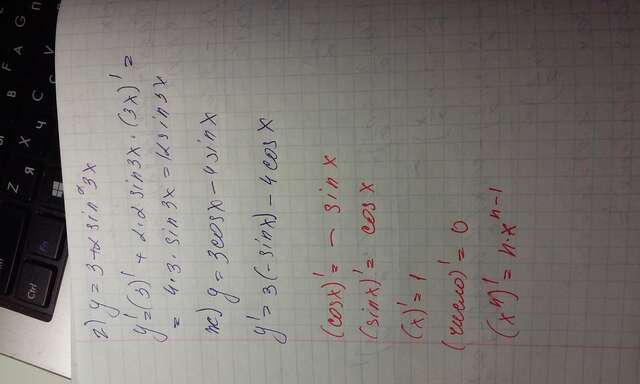 Z
X
C
B
F
A
G
П
Ctrl
Fn
Я
Ч
С
г) y = 3+2 sin²3x
y'=(3)' + 2·2 sin3x·(3x)' =
= 4·3·sin3x = 12sin3x
ж) y = 3cosx - 4sinx
y' = 3(-sinx) - 4cosx
(cosx)' = - sinx
(sinx)' = cosx
(x)' = 1
(число)' = 0
(xⁿ)' = n·xⁿ⁻¹